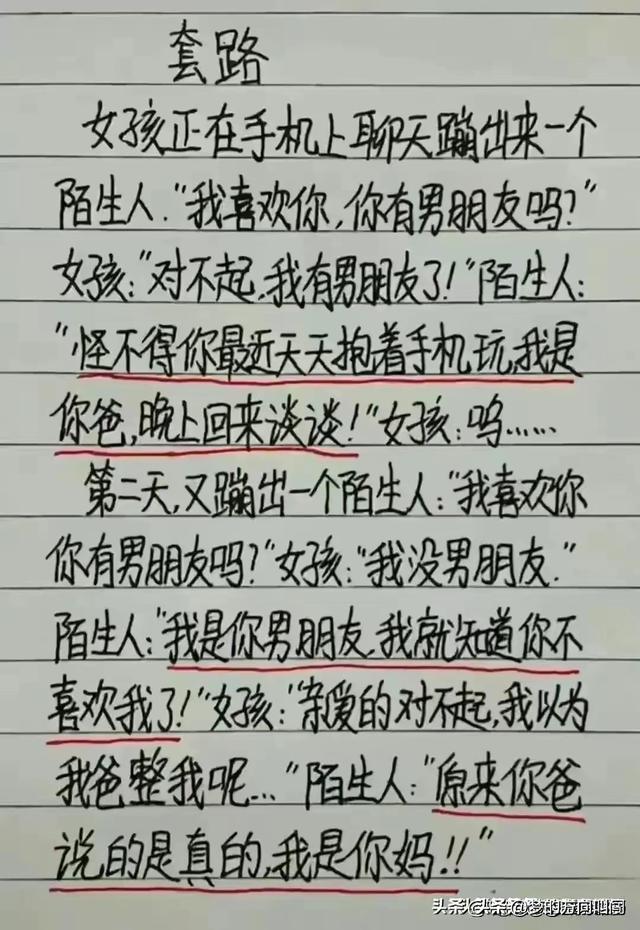 套路
女孩正在手机上聊天蹦出来一个
陌生人:"我喜欢你,你有男朋友吗?"
女孩:"对不起,我有男朋友了!"陌生人:
"怪不得你最近天天抱着手机玩,我是
你爸,晚上回来谈谈!"女孩:呜……
第二天,又蹦出一个陌生人:"我喜欢你
你有男朋友吗?"女孩:"我没男朋友."
陌生人:"我是你男朋友,我就知道你不
喜欢我了!"女孩:"亲爱的对不起,我以为
我爸整我呢…"陌生人:"原来你爸
说的是真的,我是你妈!!"